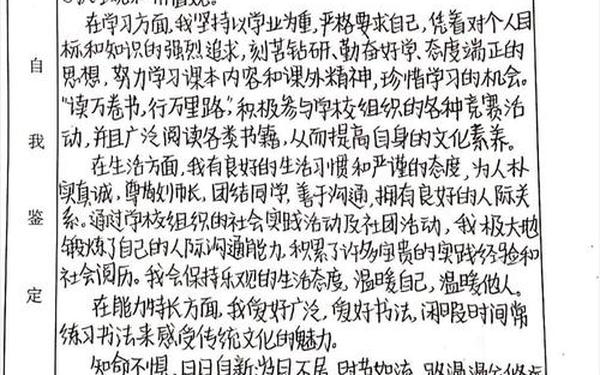 自我鉴定
在学习方面,我坚持以学业为重,严格要求自己,凭着对个人目
标和知识的强烈追求,刻苦钻研、勤奋好学、态度端正的
思想,努力学习课本内容和课外精神,珍惜学习的机会。
“读万卷书,行万里路”,积极参与学校组织的各种竞赛活
动,并且广泛阅读各类书籍,从而提高自身的文化素养。
在生活方面,我有良好的生活习惯和严谨的态度,为人朴
实真诚,尊敬师长,团结同学,善于沟通,拥有良好的人际关
系。通过学校组织的社会实践活动及社团活动,我极大地
锻炼了自己的人际沟通能力,积累了许多宝贵的实践经验和
社会阅历。我会保持乐观的生活态度,温暖自己,温暖他人。
在能力特长方面,我爱好广泛,爱好书法,闲暇时间常
练习书法来感受传统文化的魅力。
知命不惧,日日自新